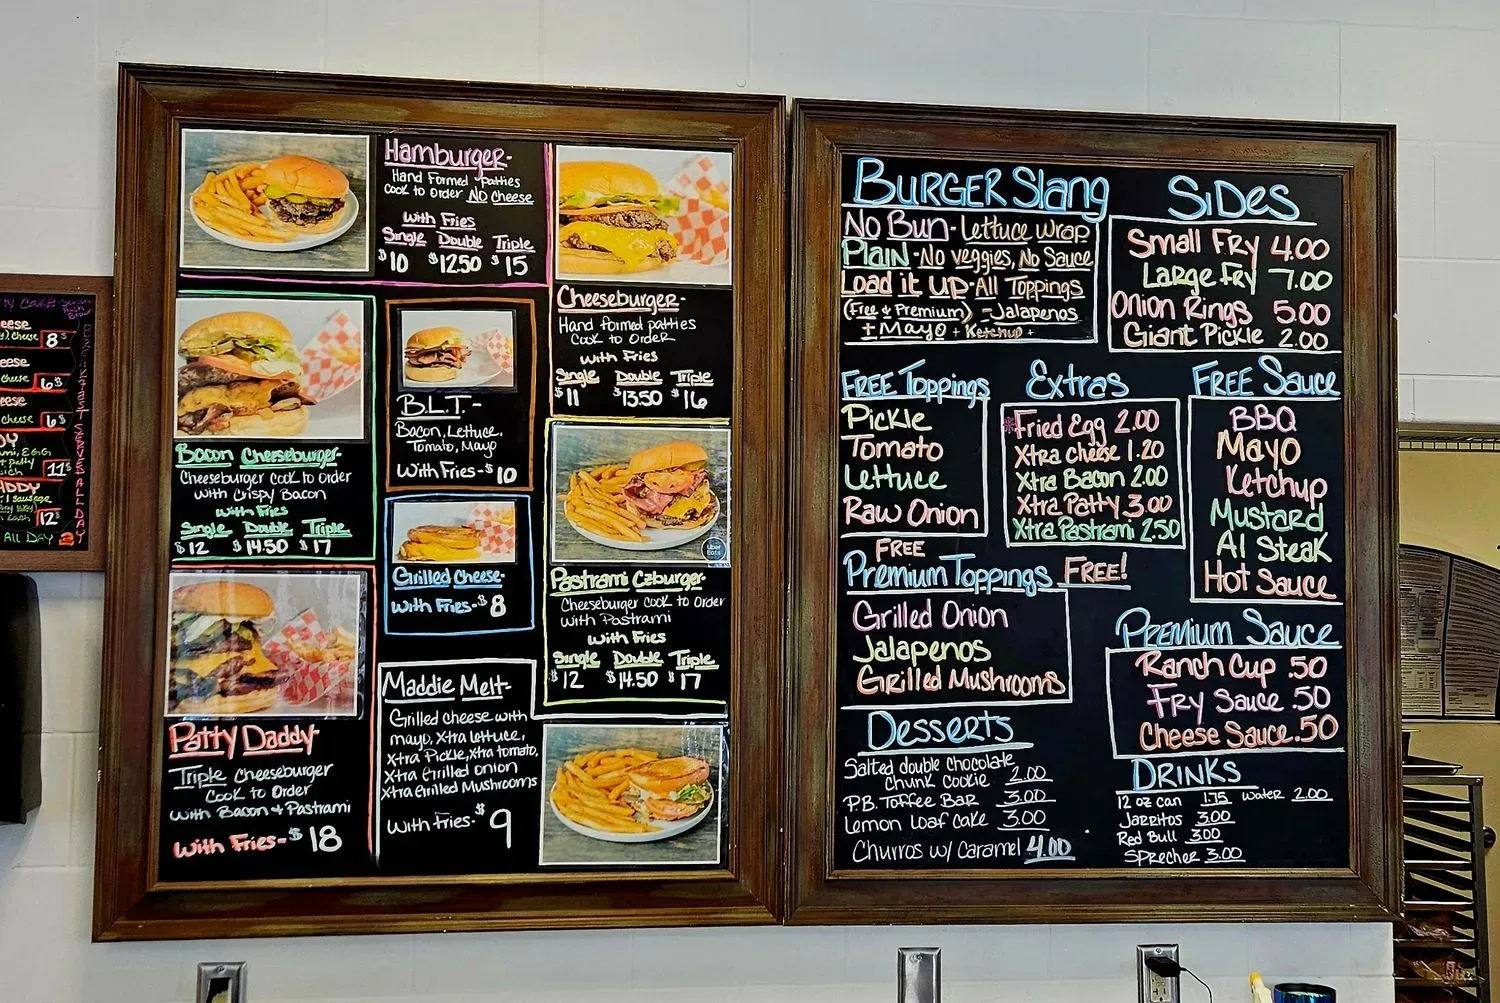 eese
Cheese 8
eese
cheese 6
ese
cheese 6
DY
11
DDY
12
ALL DAY
BREAKFAST SERVED ALL DAY
Hamburger-
Hand Formed patties
Cook to Order NO Cheese
With Fries
Single Double Triple
$10 $12.50 $15
Cheeseburger-
Hand formed patties
Cook to Order
With Fries
Single Double Triple
$11 $13.50 $16
Bacon Cheeseburger-
Cheeseburger Cook to Order
with Crispy Bacon
With Fries
Single Double Triple
$12 $14.50 $17
B.L.T.-
Bacon, Lettuce,
Tomato, Mayo
With Fries-$10
Grilled Cheese-
With Fries-$8
Pastrami Czburger-
Cheeseburger Cook to Order
with Pastrami
With Fries
Single Double Triple
$12 $14.50 $17
Uber
Eats
Patty Daddy-
Triple Cheeseburger
Cook to Order
with Bacon + Pastrami
With Fries-$18
Maddie Melt-
Grilled Cheese with
mayo, Xtra lettuce,
Xtra Pickle, Xtra tomato,
Xtra Grilled Onion
Xtra Grilled Mushrooms
With Fries-$9
BURGER Slang
No Bun-Lettuce Wrap
Plain-No Veggies, No Sauce
Load it UP-All Toppings
(Free & Premium) -Jalapenos
+ Mayo + Ketchup +
SiDes
Small Fry 4.00
Large Fry 7.00
Onion Rings 5.00
Giant Pickle 2.00
FREE Toppings
Pickle
Tomato
Lettuce
Raw Onion
Extras
*Fried Egg 2.00
Xtra cheese 1.20
Xtra Bacon 2.00
Xtra Patty 3.00
Xtra Pastrami 2.50
FREE Sauce
BBQ
Mayo
Ketchup
Mustard
A1 Steak
Hot Sauce
FREE
Premium Toppings FREE!
Grilled Onion
Jalapenos
Grilled Mushrooms
Premium Sauce
Ranch Cup .50
Fry Sauce .50
Cheese Sauce .50
Desserts
Salted double chocolate
Chunk Cookie 2.00
P.B. Toffee Bar 3.00
Lemon Loaf Cake 3.00
Churros w/ Caramel 4.00
DRINKS
12 oz can 1.75 water 2.00
Jarritos 3.00
Red Bull 3.00
Sprecher 3.00